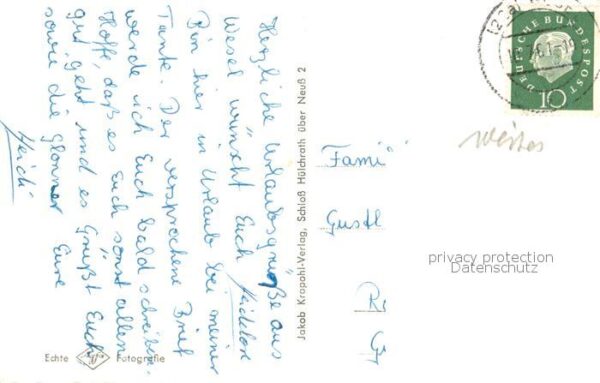 Herzliche Urlaubsgrüße aus
Wesel wünscht Euch Heidelore
Bin hier in Urlaub bei meiner
Tante. Der versprochene Brief
werde ich Euch bald schreiben.
Hoffe, daß es Euch sonst allen
gut geht und es Grüßt Euch
sowie die Glonner Eure
Heidi
Jakob Krapohl-Verlag, Schloß Hülchrath über Neuß 2
Echte Fotografie
DEUTSCHE BUNDESPOST
10
Fami
Gustl
privacy protection
Datenschutz
R
G